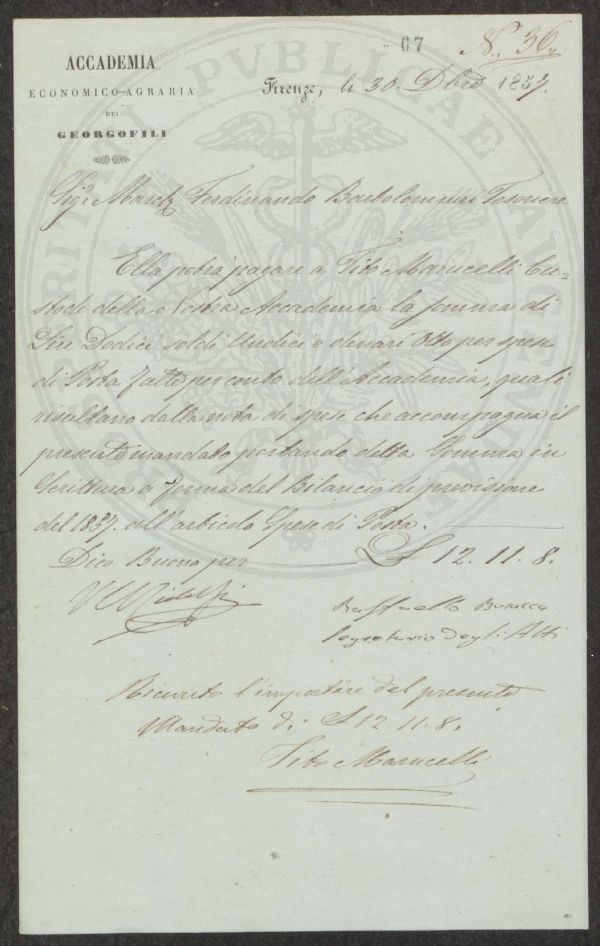 67
N. 36.
ACCADEMIA
ECONOMICO-AGRARIA
DEI
GEORGOFILI
Firenze, li 30. Dbre 1857.
PROSPERITATI PVBLICAE AVGENDAE
Sigr. March. Ferdinando Bartolommei Tesoriere
Ella potrà pagare a Tito Marucelli Cu-
stode della Nostra Accademia la somma di
Lire Dodici soldi Undici e denari Otto per spese
di Posta fatte per conto dell'Accademia, quali
risultano dalla nota di spese che accompagna il
presente mandato portando detta Somma in
Scrittura a forma del Bilancio di previsione
del 1857. all'articolo Spese di Posta.
Dico Buono per £ 12. 11. 8.
Ridolfi
Raffaello Busacca
Segretario degli Atti
Ricevuto l'importare del presente
Mandato di £ 12 11. 8.
Tito Marucelli